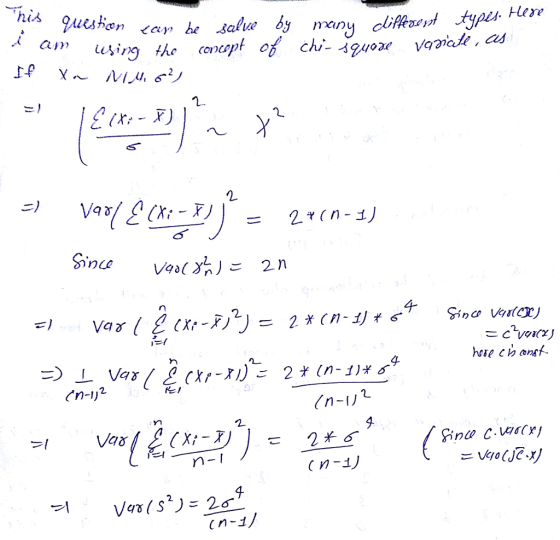 This question can be salve by many different types. Here
i am using the concept of chi-square variate, as
If X ~ N(μ, σ²)
=) (Σ(xi - x̄)/σ)² ~ χ²
=) Var(Σ(xi - x̄)/σ)² = 2*(n-1)
Since Var(χ²n) = 2n
=) Var(Σ(i=1 to n) (xi - x̄)²) = 2*(n-1)*σ⁴ Since Var(cx)
= c²var(x)
here c is const.
=) 1/(n-1)² Var(Σ(i=1 to n) (xi - x̄))² = 2*(n-1)*σ⁴/(n-1)²
=) Var(Σ(i=1 to n) (xi - x̄)²/(n-1)) = 2*σ⁴/(n-1) (Since c.Var(x)
= Var(√c.x)
=) Var(s²) = 2σ⁴/(n-1)